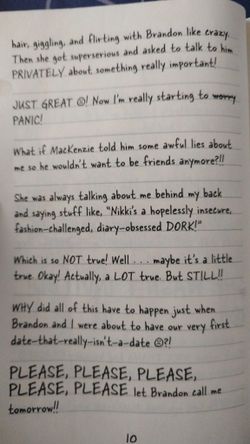 hair, giggling, and flirting with Brandon like crazy.
Then she got superserious and asked to talk to him
PRIVATELY about something really important!
JUST GREAT ☹! Now I'm really starting to worry
PANIC!
What if MacKenzie told him some awful lies about
me so he wouldn't want to be friends anymore?!!
She was always talking about me behind my back
and saying stuff like, "Nikki's a hopelessly insecure,
fashion-challenged, diary-obsessed DORK!"
Which is so NOT true! Well . . . maybe it's a little
true. Okay! Actually, a LOT true. But STILL!!
WHY did all of this have to happen just when
Brandon and I were about to have our very first
date-that-really-isn't-a-date ☹?!
PLEASE, PLEASE, PLEASE,
PLEASE, PLEASE let Brandon call me
tomorrow!!
10